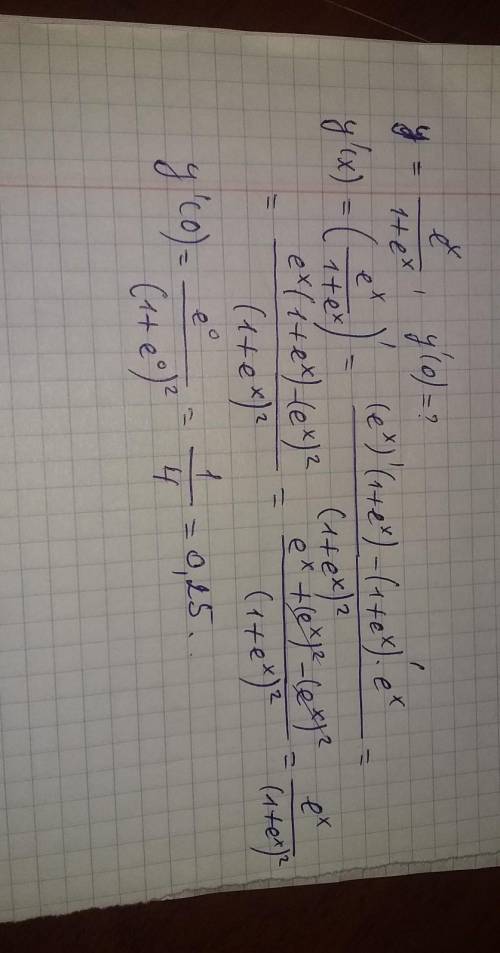 y = e^x / (1+e^x), y'(0) = ?
y'(x) = (e^x / (1+e^x))' = ((e^x)'(1+e^x) - (1+e^x)'·e^x) / (1+e^x)^2 =
= (e^x(1+e^x) - (e^x)^2) / (1+e^x)^2 = (e^x + (e^x)^2 - (e^x)^2) / (1+e^x)^2 = e^x / (1+e^x)^2
y'(0) = e^0 / (1+e^0)^2 = 1/4 = 0,25.